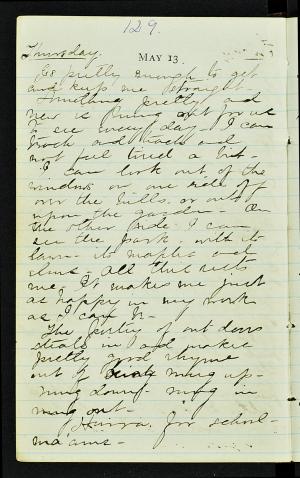 129.
Thursday.
MAY 13
Is pretty enough to get
and keep me straight.
Something pretty and
new is put out for us
to see every day. I can
and teach and
not feel tired a bit.
I can look out of the
window on one side off
over the hills, or out
upon the garden. On
the other side I can
see the park, with its
lawn its maples and
elms. All this rests
me. It makes me just
as happy in my work
as I can be.
The poetry of out doors
steals in and makes
pretty good rhyme
out of
out
Hurra for school-
ma'ams.